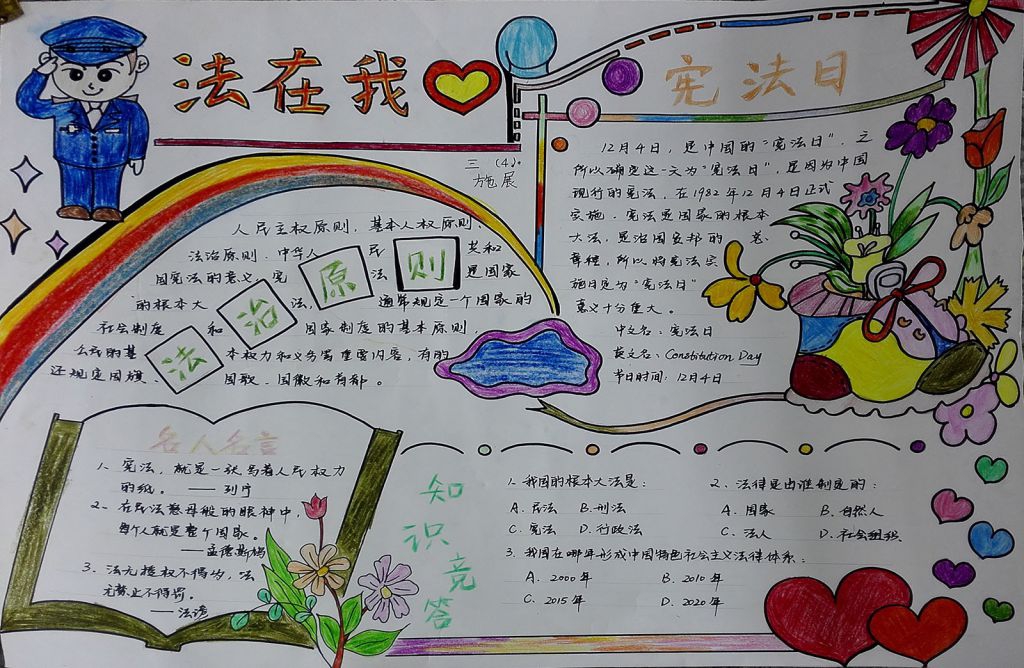 法在我
宪法日
三（4）.
施展
12月4日，是中国的"宪法日"．之
所以确定这一天为"宪法日"，是因为中国
现行的宪法，在1982年12月4日正式
实施．宪法是国家的根本
大法，是治国安邦的 总
章程，所以将宪法实
施日定为"宪法日"
意义十分重大。
中文名：宪法日
英文名：Constitution Day
节日时间：12月4日
人民主权原则，基本人权原则、
法治原则．中华人 民 共和
国宪法的意义．宪 法 是国家
的根本大 法，通常规定一个国家的
社会制度 和 国家制度的基本原则，
公民的基 本权力和义务等重要内容，有的
还规定国旗、 国歌．国徽和首都。
法治原则
名人名言
1、宪法，就是一张写着人民权力
的纸。——列宁
2、在民法慈母般的眼神中，
每个人就是整个国家。
——孟德斯鸠
3、法无授权不得为，法
无禁止不得罚。
——法谚
知识竞答
1、我国的根本大法是：
A．民法 B．刑法
C．宪法 D．行政法
2、法律是由谁制定的：
A．国家 B．自然人
C．法人 D．社会组织
3、我国在哪年形成中国特色社会主义法律体系：
A．2000年 B．2010年
C．2015年 D．2020年